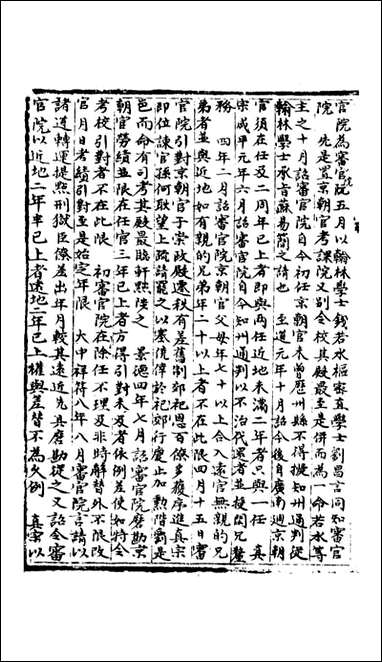 官院為審官院五月以翰林學士錢若水樞密直學士劉昌言同知審官
院　先是置京朝官考課院又別令校其殿最至是併而為一命若水等
主之十月詔審官院自今初任京朝官未曾歷州縣不得擬知州通判從
翰林學士承旨蘇易簡之請也　至道元年十月詔今後自廣南迴京朝
官須在任及二周年已上者即與兩任近地未滿二年者只與一任　真
宗咸平元年六月詔審官院自今知州通判以不治代還者並授閑冗釐
務　四年二月詔審官院京朝官父母年七十以上合入遠官無親的兄
弟者並與近地如有親的兄弟年二十以上者不在此限四月十五日審
官院引對京朝官于崇政殿遷秩有差舊制郊祀恩百僚多獲序進真宗
即位諫官孫何耿望上疏請罷之以塞僥倖於祀郊行慶止加勲階爵
邑而命有司考其殿最臨軒黜陟之　景德四年七月詔審官院磨勘京
朝官勞績並限在任官三年已上者方得引對未及者依例差使如特令
考校引對者不在此限　初審官院在除任不理及非時解替外不限改
官月日考績引對至是始定年限　大中祥符八年八月審官院言請以
諸道轉運提㸃刑獄臣僚差出年月較其遠近先具磨勘從之又詔令審
官院以近地二年半已上者遠地二年已上權與差替不為久例　真宗以